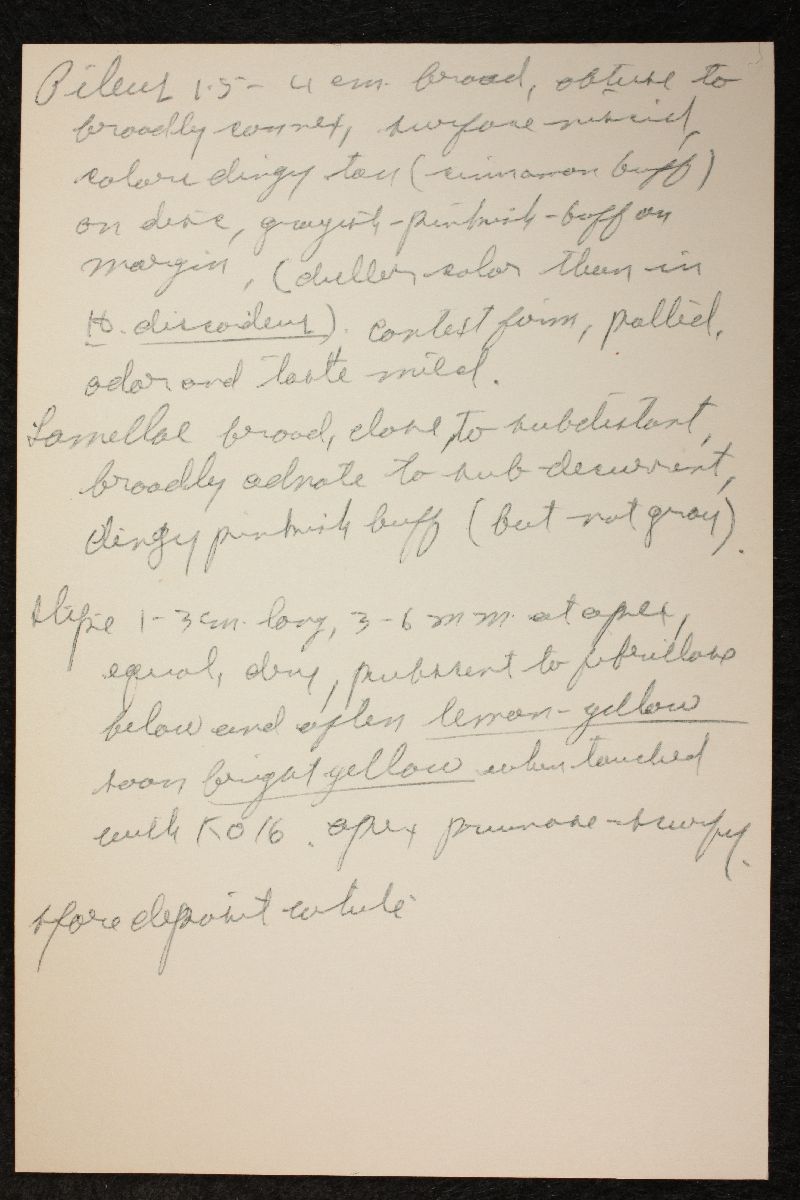 Pileus 1.5 - 4 cm. broad, obtuse to
broadly convex, surface viscid,
colors dingy tan (cinnamon buff)
on disc, grayish-pinkish-buff on
margin, (duller color than in
H. discoideus). context firm, pallid,
odor and taste mild.
Lamellae broad, close, to subdistant,
broadly adnate to sub-decurrent,
dingy pinkish buff (but not gray).
Stipe 1-3 cm. long, 3-6 mm. at apex,
equal, dry, pubescent to fibrillose
below and often lemon-yellow
soon bright yellow when touched
with KOH. apex pruinose-scurfy.
Spore deposit white